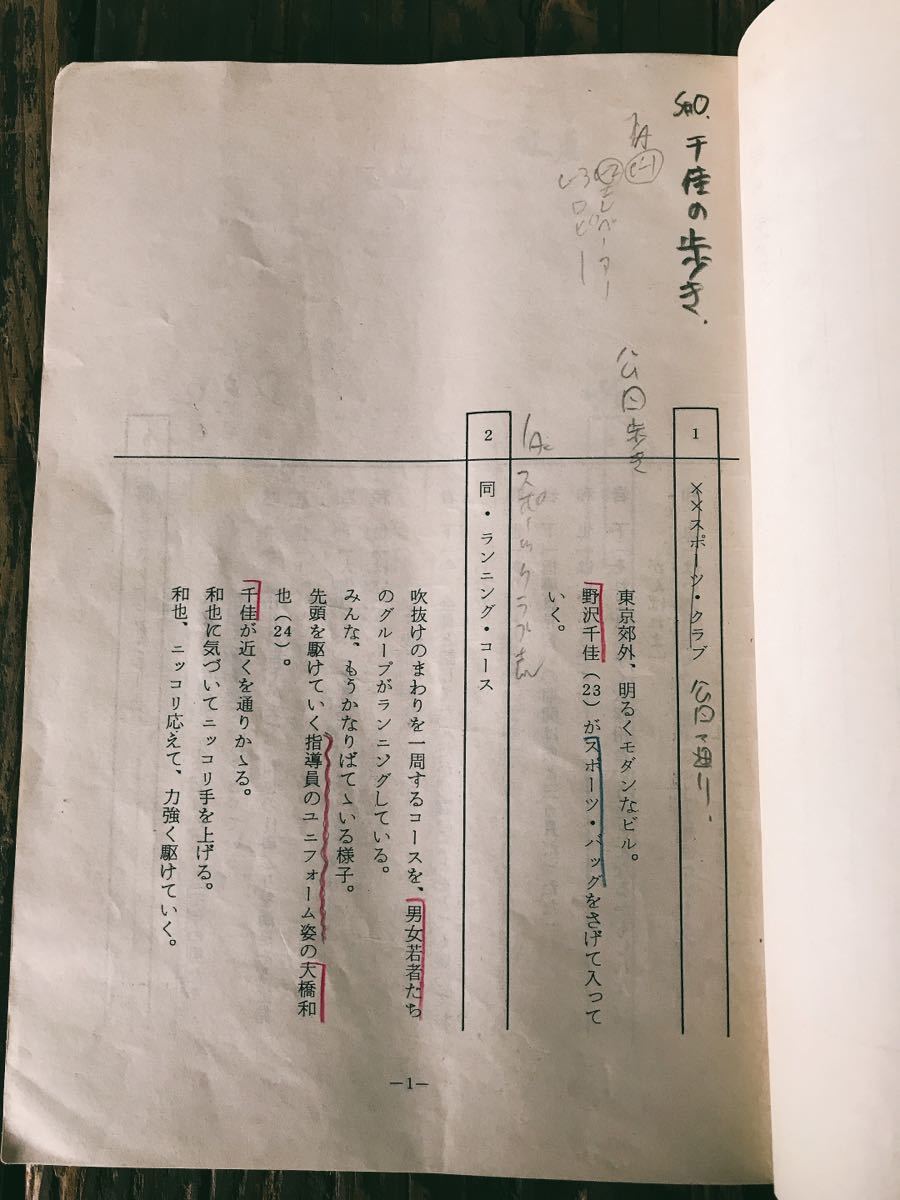 S#0. 千佳の歩き.
エレベーター
ロビー
公園歩き
1
××スポーツ・クラブ
公園通り.
東京郊外、明るくモダンなビル。
野沢千佳（23）がスポーツ・バッグをさげて入って
いく。
スポーツクラブ
2
同・ランニング・コース
吹抜けのまわりを一周するコースを、男女若者たち
のグループがランニングしている。
みんな、もうかなりばてゝいる様子。
先頭を駆けていく指導員のユニフォーム姿の大橋和
也（24）。
千佳が近くを通りかゝる。
和也に気づいてニッコリ手を上げる。
和也、ニッコリ応えて、力強く駆けていく。
—1—